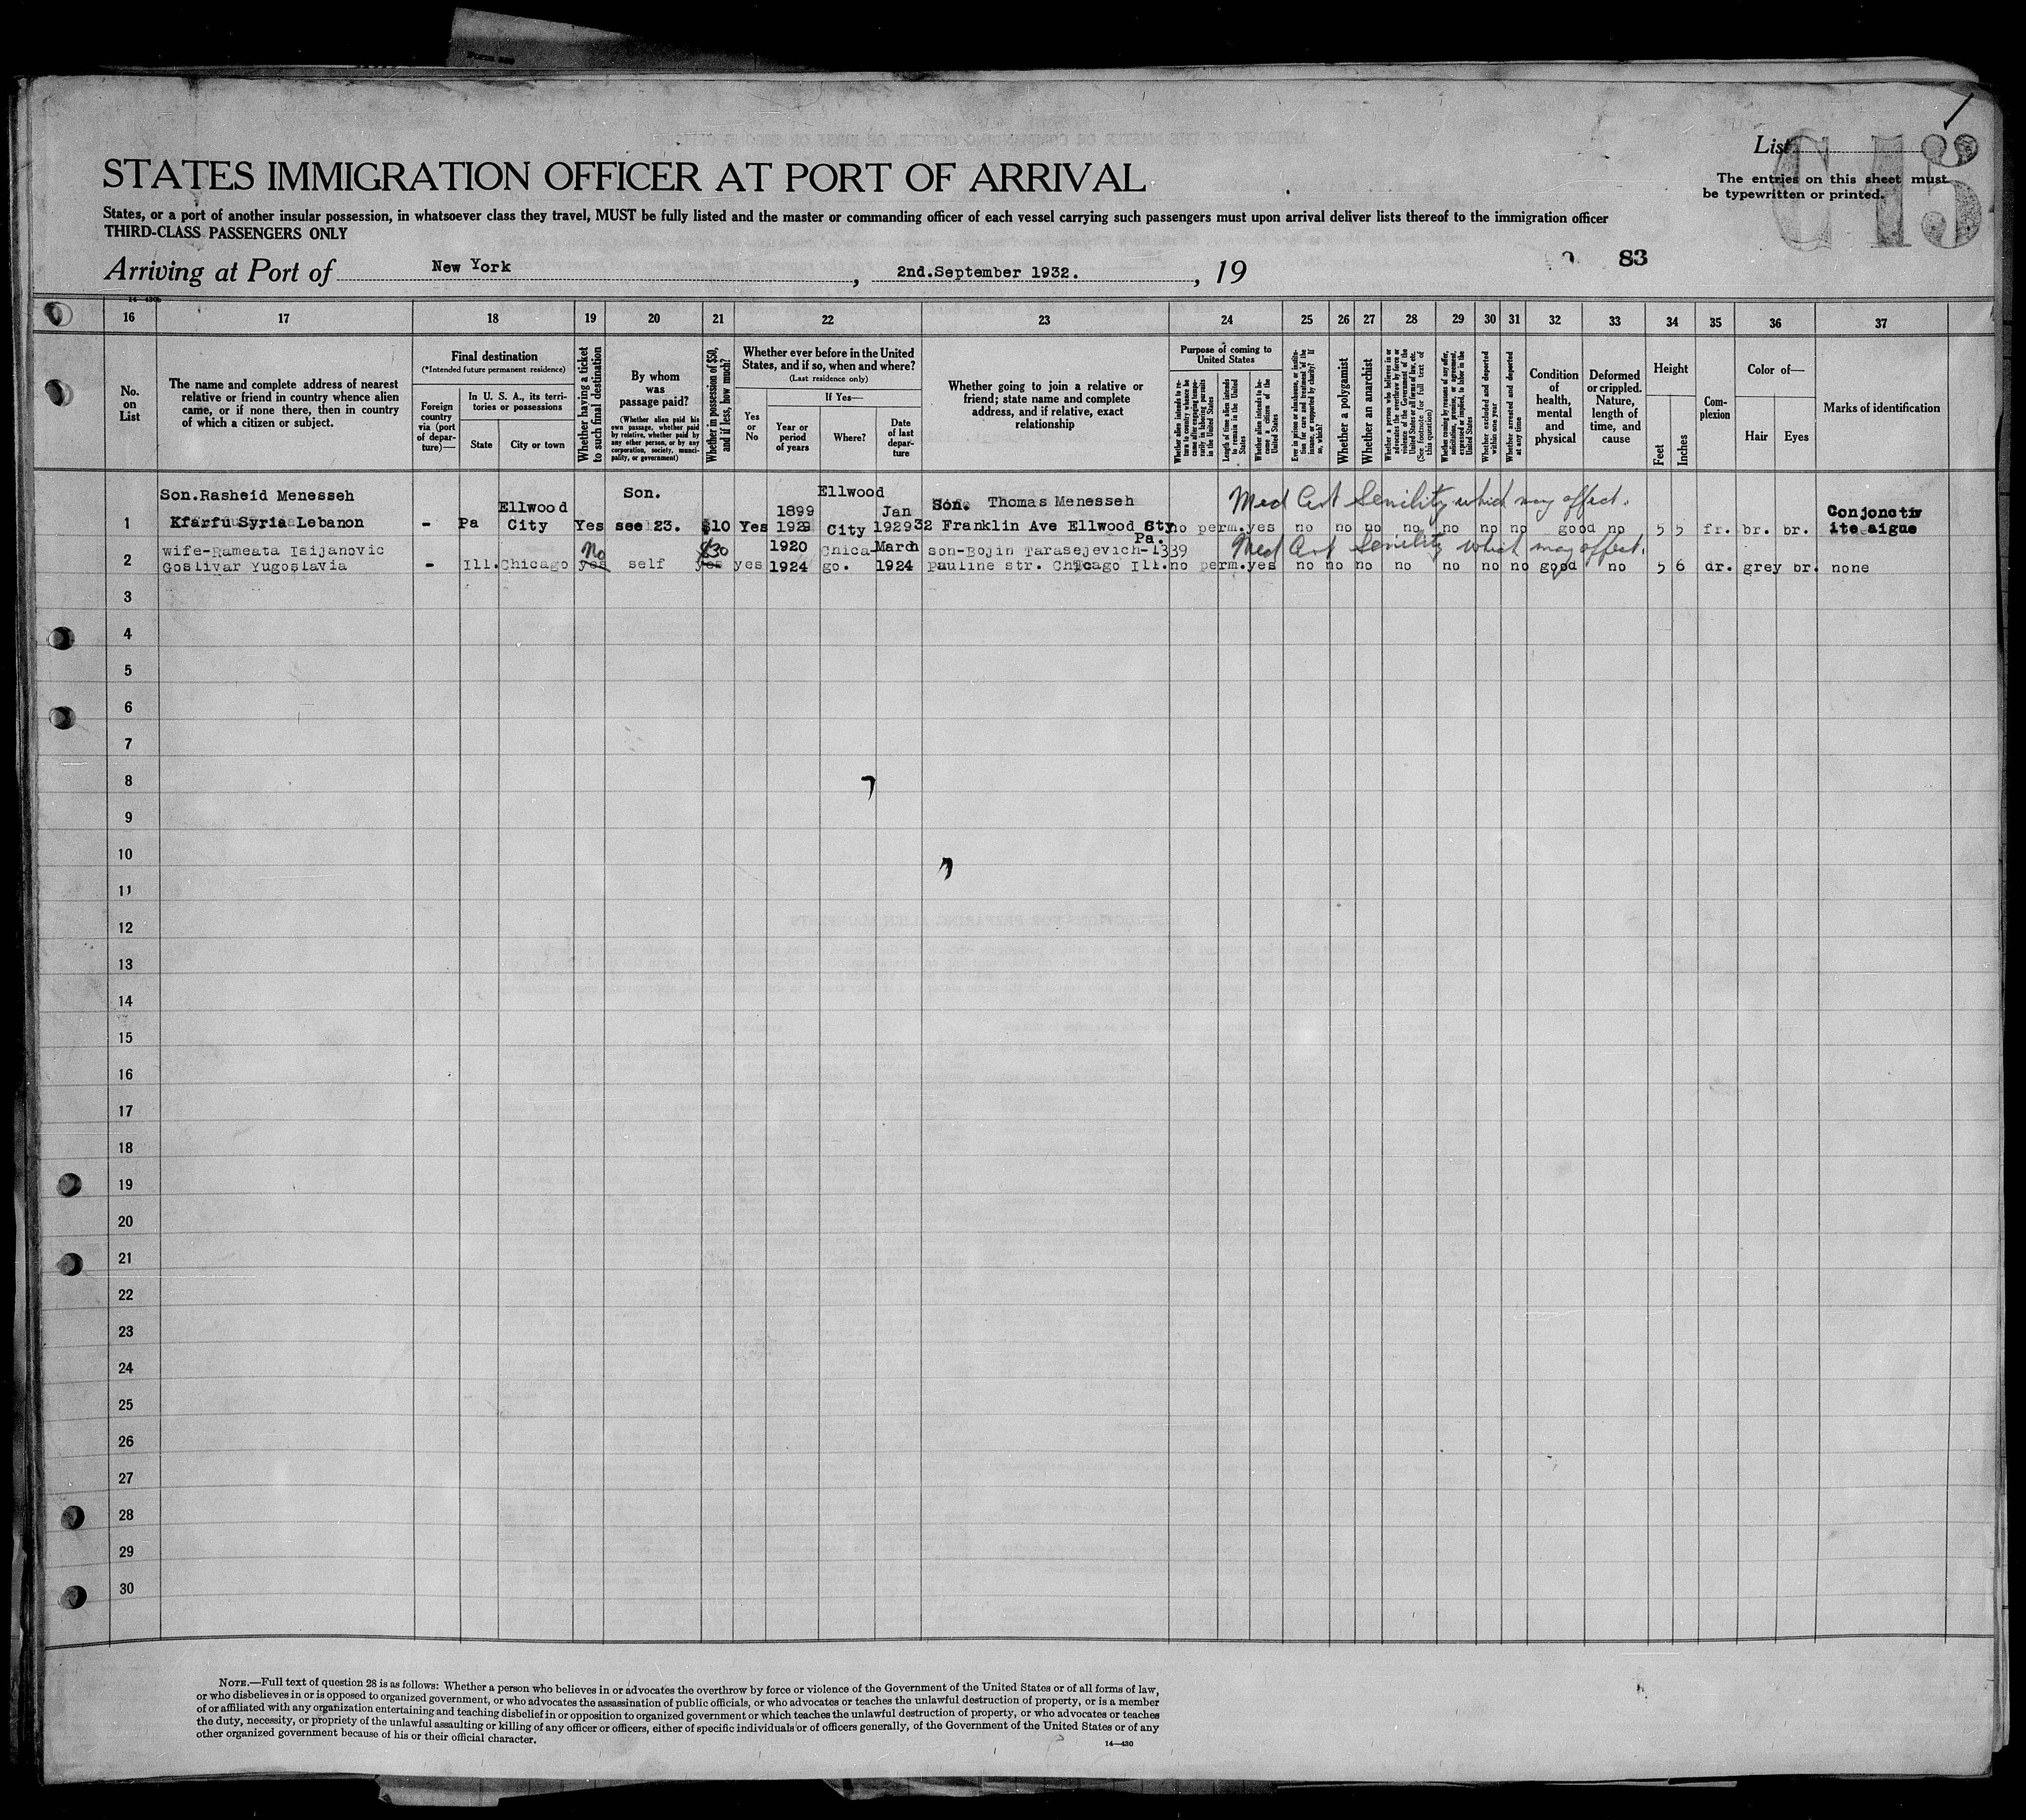 List
C 13
The entries on this sheet must
be typewritten or printed.
STATES IMMIGRATION OFFICER AT PORT OF ARRIVAL
States, or a port of another insular possession, in whatsoever class they travel, MUST be fully listed and the master or commanding officer of each vessel carrying such passengers must upon arrival deliver lists thereof to the immigration officer
THIRD-CLASS PASSENGERS ONLY
83
Arriving at Port of New York, 2nd.September 1932., 19
16 17 18 19 20 21 22 23 24 25 26 27 28 29 30 31 32 33 34 35 36 37
No.
on
List
The name and complete address of nearest
relative or friend in country whence alien
came, or if none there, then in country
of which a citizen or subject.
Final destination
(*Intended future permanent residence)
Foreign
country
via (port
of depar-
ture)—
In U. S. A., its terri-
tories or possessions
State
City or town
Whether having a ticket
to such final destination
By whom
was
passage paid?
(Whether alien paid his
own passage, whether paid
by relative, whether paid by
any other person, or by any
corporation, society, munici-
pality, or government)
Whether in possession of $50,
and if less, how much?
Whether ever before in the United
States, and if so, when and where?
(Last residence only)
Yes
or
No
If Yes—
Year or
period
of years
Where?
Date
of last
depar-
ture
Whether going to join a relative or
friend; state name and complete
address, and if relative, exact
relationship
Purpose of coming to
United States
Whether alien intends to re-
turn to country whence he
came after engaging tempo-
rarily in laboring pursuits
in the United States
Length of time alien intends
to remain in the United
States
Whether alien intends to be-
come a citizen of the
United States
Ever in prison or almshouse, or institu-
tion for care and treatment of the
insane, or supported by charity? If
so, which?
Whether a polygamist
Whether an anarchist
Whether a person who believes in or
advocates the overthrow by force or
violence of the Government of the
United States or all forms of law, etc.
(See footnote for full text of
this question)
Whether coming by reason of any offer,
solicitation, promise, or agreement,
expressed or implied, to labor in the
United States
Whether excluded and deported
within one year
Whether arrested and deported
at any time
Condition
of
health,
mental
and
physical
Deformed
or crippled.
Nature,
length of
time, and
cause
Height
Feet
Inches
Com-
plexion
Color of—
Hair
Eyes
Marks of identification
Son.Rasheid Menesseh Ellwood Son. 1899 Ellwood Jan Son. Thomas Menesseh Med Cert Senility which may affect. Conjonctiv
1 Kfarfu Syria Lebanon - Pa City Yes see 23. $10 Yes 1929 City 1929 32 Franklin Ave Ellwood Cty no perm. yes no no no no no no no good no 5 5 fr. br. br. ite aigue
Pa.
wife-Rameata Isijanovic No $30 1920 Chica- March son-Bojin Tarasejevich-1339 Med Cert Senility which may affect.
2 Goslivar Yugoslavia - Ill. Chicago yes self yes yes 1924 go. 1924 Pauline str. Chicago Ill. no perm. yes no no no no no no no good no 5 6 dr. grey br. none
3
4
5
6
7
8
9
10
11
12
13
14
15
16
17
18
19
20
21
22
23
24
25
26
27
28
29
30
NOTE.—Full text of question 28 is as follows: Whether a person who believes in or advocates the overthrow by force or violence of the Government of the United States or of all forms of law,
or who disbelieves in or is opposed to organized government, or who advocates the assassination of public officials, or who advocates or teaches the unlawful destruction of property, or is a member
of or affiliated with any organization entertaining and teaching disbelief in or opposition to organized government or which teaches the unlawful destruction of property, or who advocates or teaches
the duty, necessity, or propriety of the unlawful assaulting or killing of any officer or officers, either of specific individuals or of officers generally, of the Government of the United States or of any
other organized government because of his or their official character.
14—430